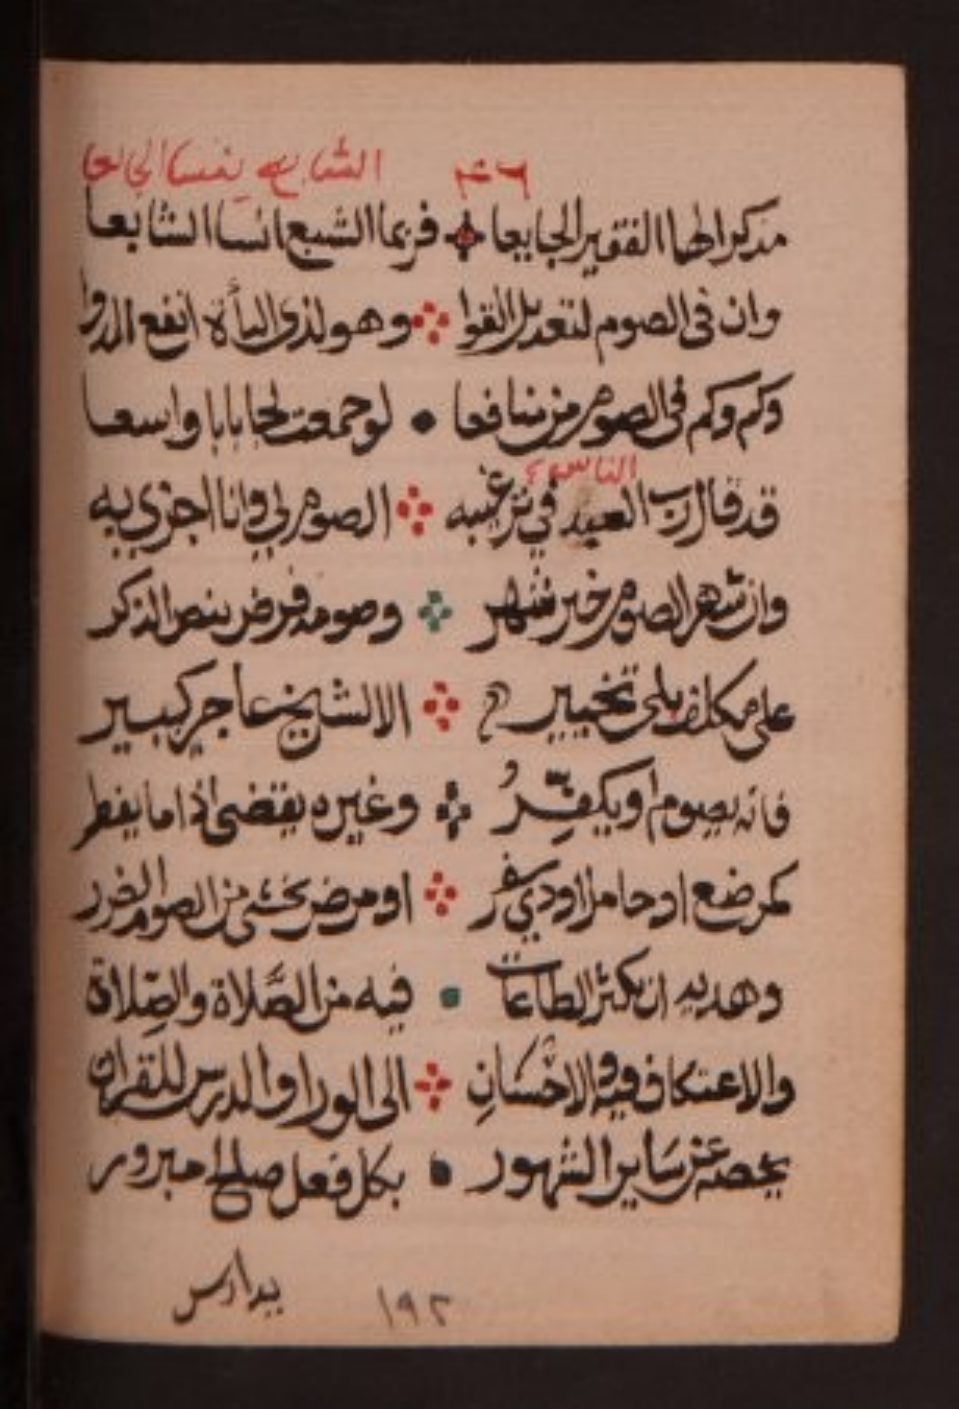 الشابع ينسا الجايعا
مذكرا لها الفقير الجايعا فربما الشبع انسا الشابعا
وان في الصوم لتعديل القوا وهو لذي البأة انفع الدوا
وكم وكم في الصوم من منافعا لو جمعت لجا بابا واسعا
الناس
قد قال رب العبيد في ترغيبه الصوم لي وانا اجزي به
وان شهر الصوم خير شهر وصومه فرض بنص الذكر
على مكلف بلى تخيير الا لشيخ عاجر كبير
فانه يصوم او يكفِّرُ وغيره يقتضى اذا ما يفطر
كمرضع او حامل او ذي سفر او مرض يخشى من الصوم الضرر
وهديه ان يكثر الطاعات فيه من الصَّلاة والصِّلاة
والاعتكاف فيه والاحْسَانِ الى الورا والدرس للقران
يخصه عن سَاير الشهور بكل فعل صالح مبرور
يدارس
١٩٢